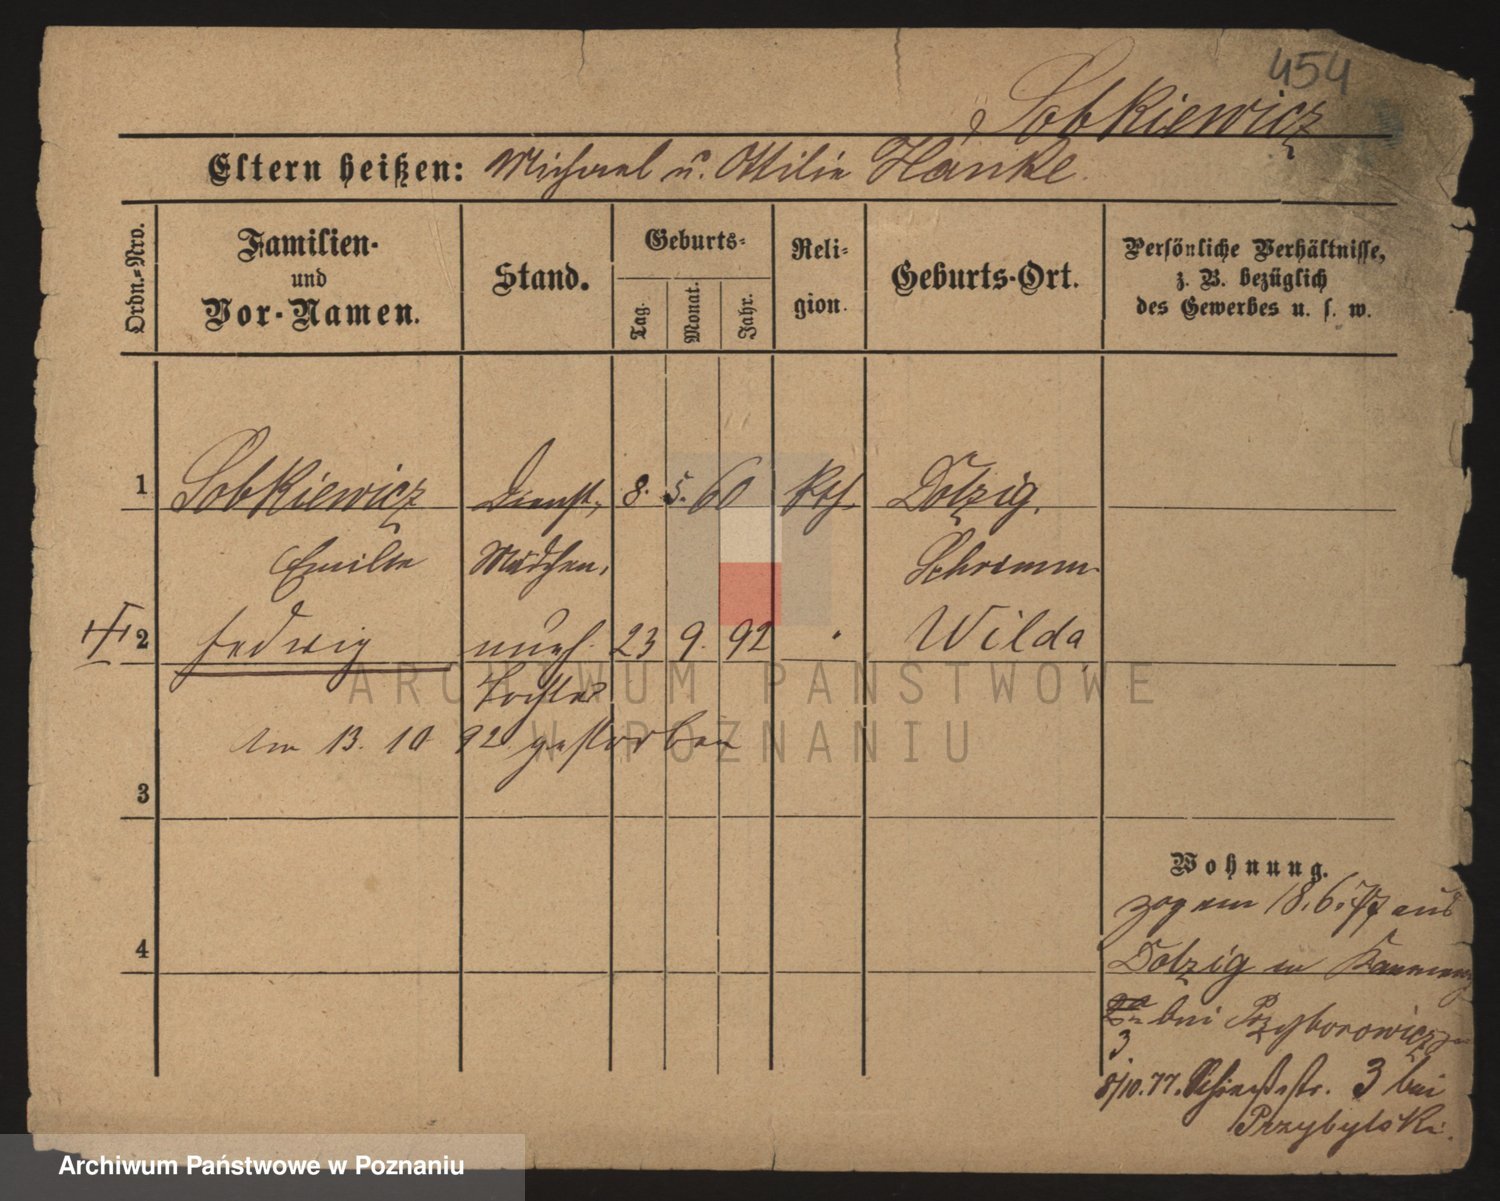 454
Sobkiewicz
Eltern heißen: Michael u. Ottilie Hanke.
Ordn.-Nro.
Familien- und Vor-Namen.
Stand.
Geburts-
Tag.
Monat.
Jahr.
Reli-
gion.
Geburts-Ort.
Persönliche Verhältnisse,
z. B. bezüglich
des Gewerbes u. s. w.
1 Sobkiewicz Dienst- 8. 5. 60 kth. Dolzig.
Emilie Mädchen. Schrimm.
2 Hedwig uneh. 23 9. 92 " Wilda
Tochter
Am 13. 10 92 gestorben
3
4
Wohnung.
zog am 18.6.77 aus
Dolzig
bei Przyborowicz
3
8/10.77. 3 bei
Przybylski.
ARCHIWUM PAŃSTWOWE
W POZNANIU
Archiwum Państwowe w Poznaniu